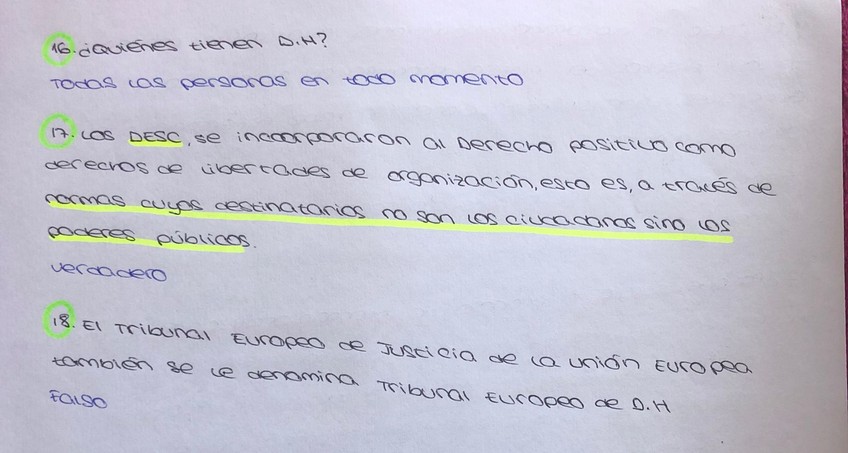 16. ¿Quiénes tienen D.H?
Todas las personas en todo momento
17. Los DESC, se incorporaron al Derecho positivo como
derechos de libertades de organización, esto es, a través de
normas cuyos destinatarios no son los ciudadanos sino los
poderes públicos.
verdadero
18. El Tribunal Europeo de Justicia de la Unión Europea
también se le denomina Tribunal Europeo de D.H
Falso